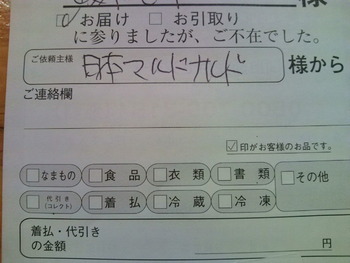 様
☑お届け □お引取り
に参りましたが、ご不在でした。
ご依頼主様 日本マルドナルド 様から
ご連絡欄
☑印がお客様のお品です。
□なまもの □食品 □衣類 □書類 □その他
□代引き(コレクト) □着払 □冷蔵 □冷凍
着払・代引き
の金額 円